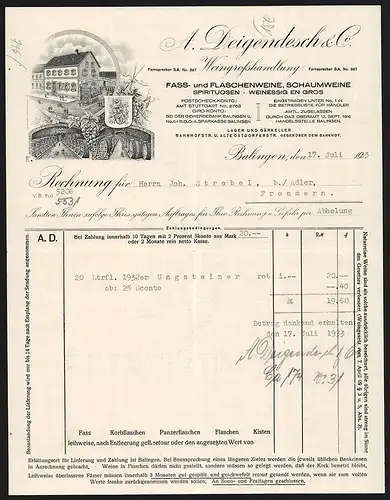 A. Deigendesch & Co.
Weingrosshandlung
Fernsprecher S.A. No. 867
Fernsprecher S.A. No. 867
FASS- und FLASCHENWEINE, SCHAUMWEINE
SPIRITUOSEN · WEINESSIG EN GROS
POSTSCHECK-KONTO:
AMT STUTTGART No. 2763
GIRO-KONTO:
BEI DER GEWERBEBANK BALINGEN U.
BALINGEN.
EINGETRAGEN UNTER No. 1 IN
DIE BETRIEBSLISTE FÜR HÄNDLER
AMTL. ZUGELASSEN
HANDELSSTELLE BALINGEN.
LAGER UND GÄRKELLER
BAHNHOFSTR. U. ALTE OSTDORFERSTR. GEGENÜBER DEM BAHNHOF.
Balingen, den 17. Juli 1933
Rechnung für Herrn Joh. Strobel, b./Adler,
Frommern.
V.B. Fol. 5206
Sandten Ihnen zufolge Ihres gütigen Auftrages für Ihre Rechnung u. Gefahr per Abholung
Zahlungsbedingungen
A. D.
Bei Zahlung innerhalb 10 Tagen mit 2 Prozent Skonto aus Mark 20.--
oder 2 Monate rein netto Kasse.
20 Ltrfl. 1932er Ungsteiner rot 20.--
ab: 2% Sconto -.40
19.60
Betrag dankend erhalten
den 17. Juli 1933
A. Deigendesch & Co
Beanstandung der Lieferung wird nur bis 14 Tage nach Empfang der Sendung angenommen
Fass Korbflaschen Panzerflaschen Flaschen Kisten
leihweise, nach Entleerung gefl. retour oder den angesetzten Wert von
Erfüllungsort für Lieferung und Zahlung ist Balingen. Bei Beanspruchung eines längeren Zieles werden die jeweils üblichen Bankzinsen
in Anrechnung gebracht. - Weine in Flaschen dürfen nicht gestellt, sondern müssen so gelegt werden, daß der Kork benetzt bleibt.
Leihweise überlassene Fässer müssen innerhalb 3 Monaten gut gespült und geschwefelt retour gesandt werden, andernfalls sie zum vollen
Werte franko zurückgenommen werden müssen. - An Sonn- und Festtagen geschlossen.